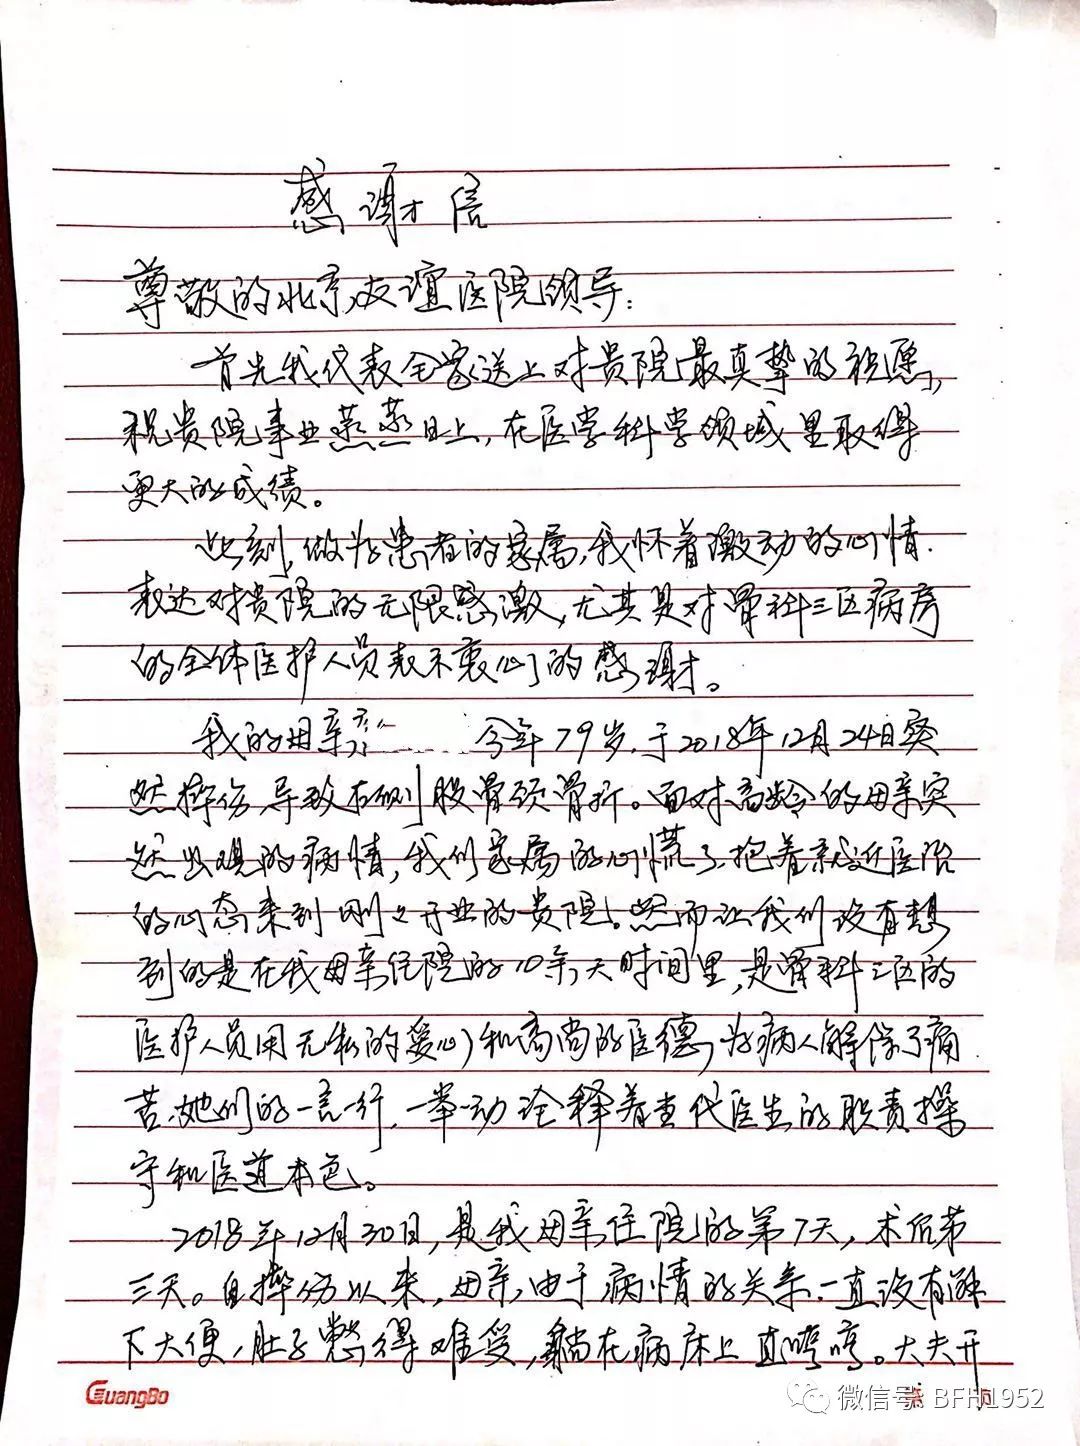 感谢信
尊敬的北京友谊医院领导:
首先我代表全家送上对贵院最真挚的祝愿,
祝贵院事业蒸蒸日上,在医学科学领域里取得
更大的成绩。
此刻,做为患者的家属,我怀着激动的心情.
表达对贵院的无限感激,尤其是对骨科三区病房
的全体医护人员表示衷心的感谢。
我的母亲 今年79岁,于2018年12月24日突
然摔伤,导致右侧股骨颈骨折。面对高龄的母亲突
然出现的病情,我们家属的心慌了.抱着就近医治
的心态来到刚々开业的贵院。然而让我们没有想
到的是在我母亲住院的10余天时间里,是骨科三区的
医护人员用无私的爱心和高尚的医德,为病人解除了痛
苦.她们的一言一行.一举一动诠释着当代医生的职责操
守和医道本色。
2018年12月30日,是我母亲住院的第7天,术后第
三天。自摔伤以来,母亲由于病情的关系.一直没有解
下大便,肚子憋得难受,躺在病床上直哼哼。大夫开
GuangBo
第 页
微信号: BFH1952